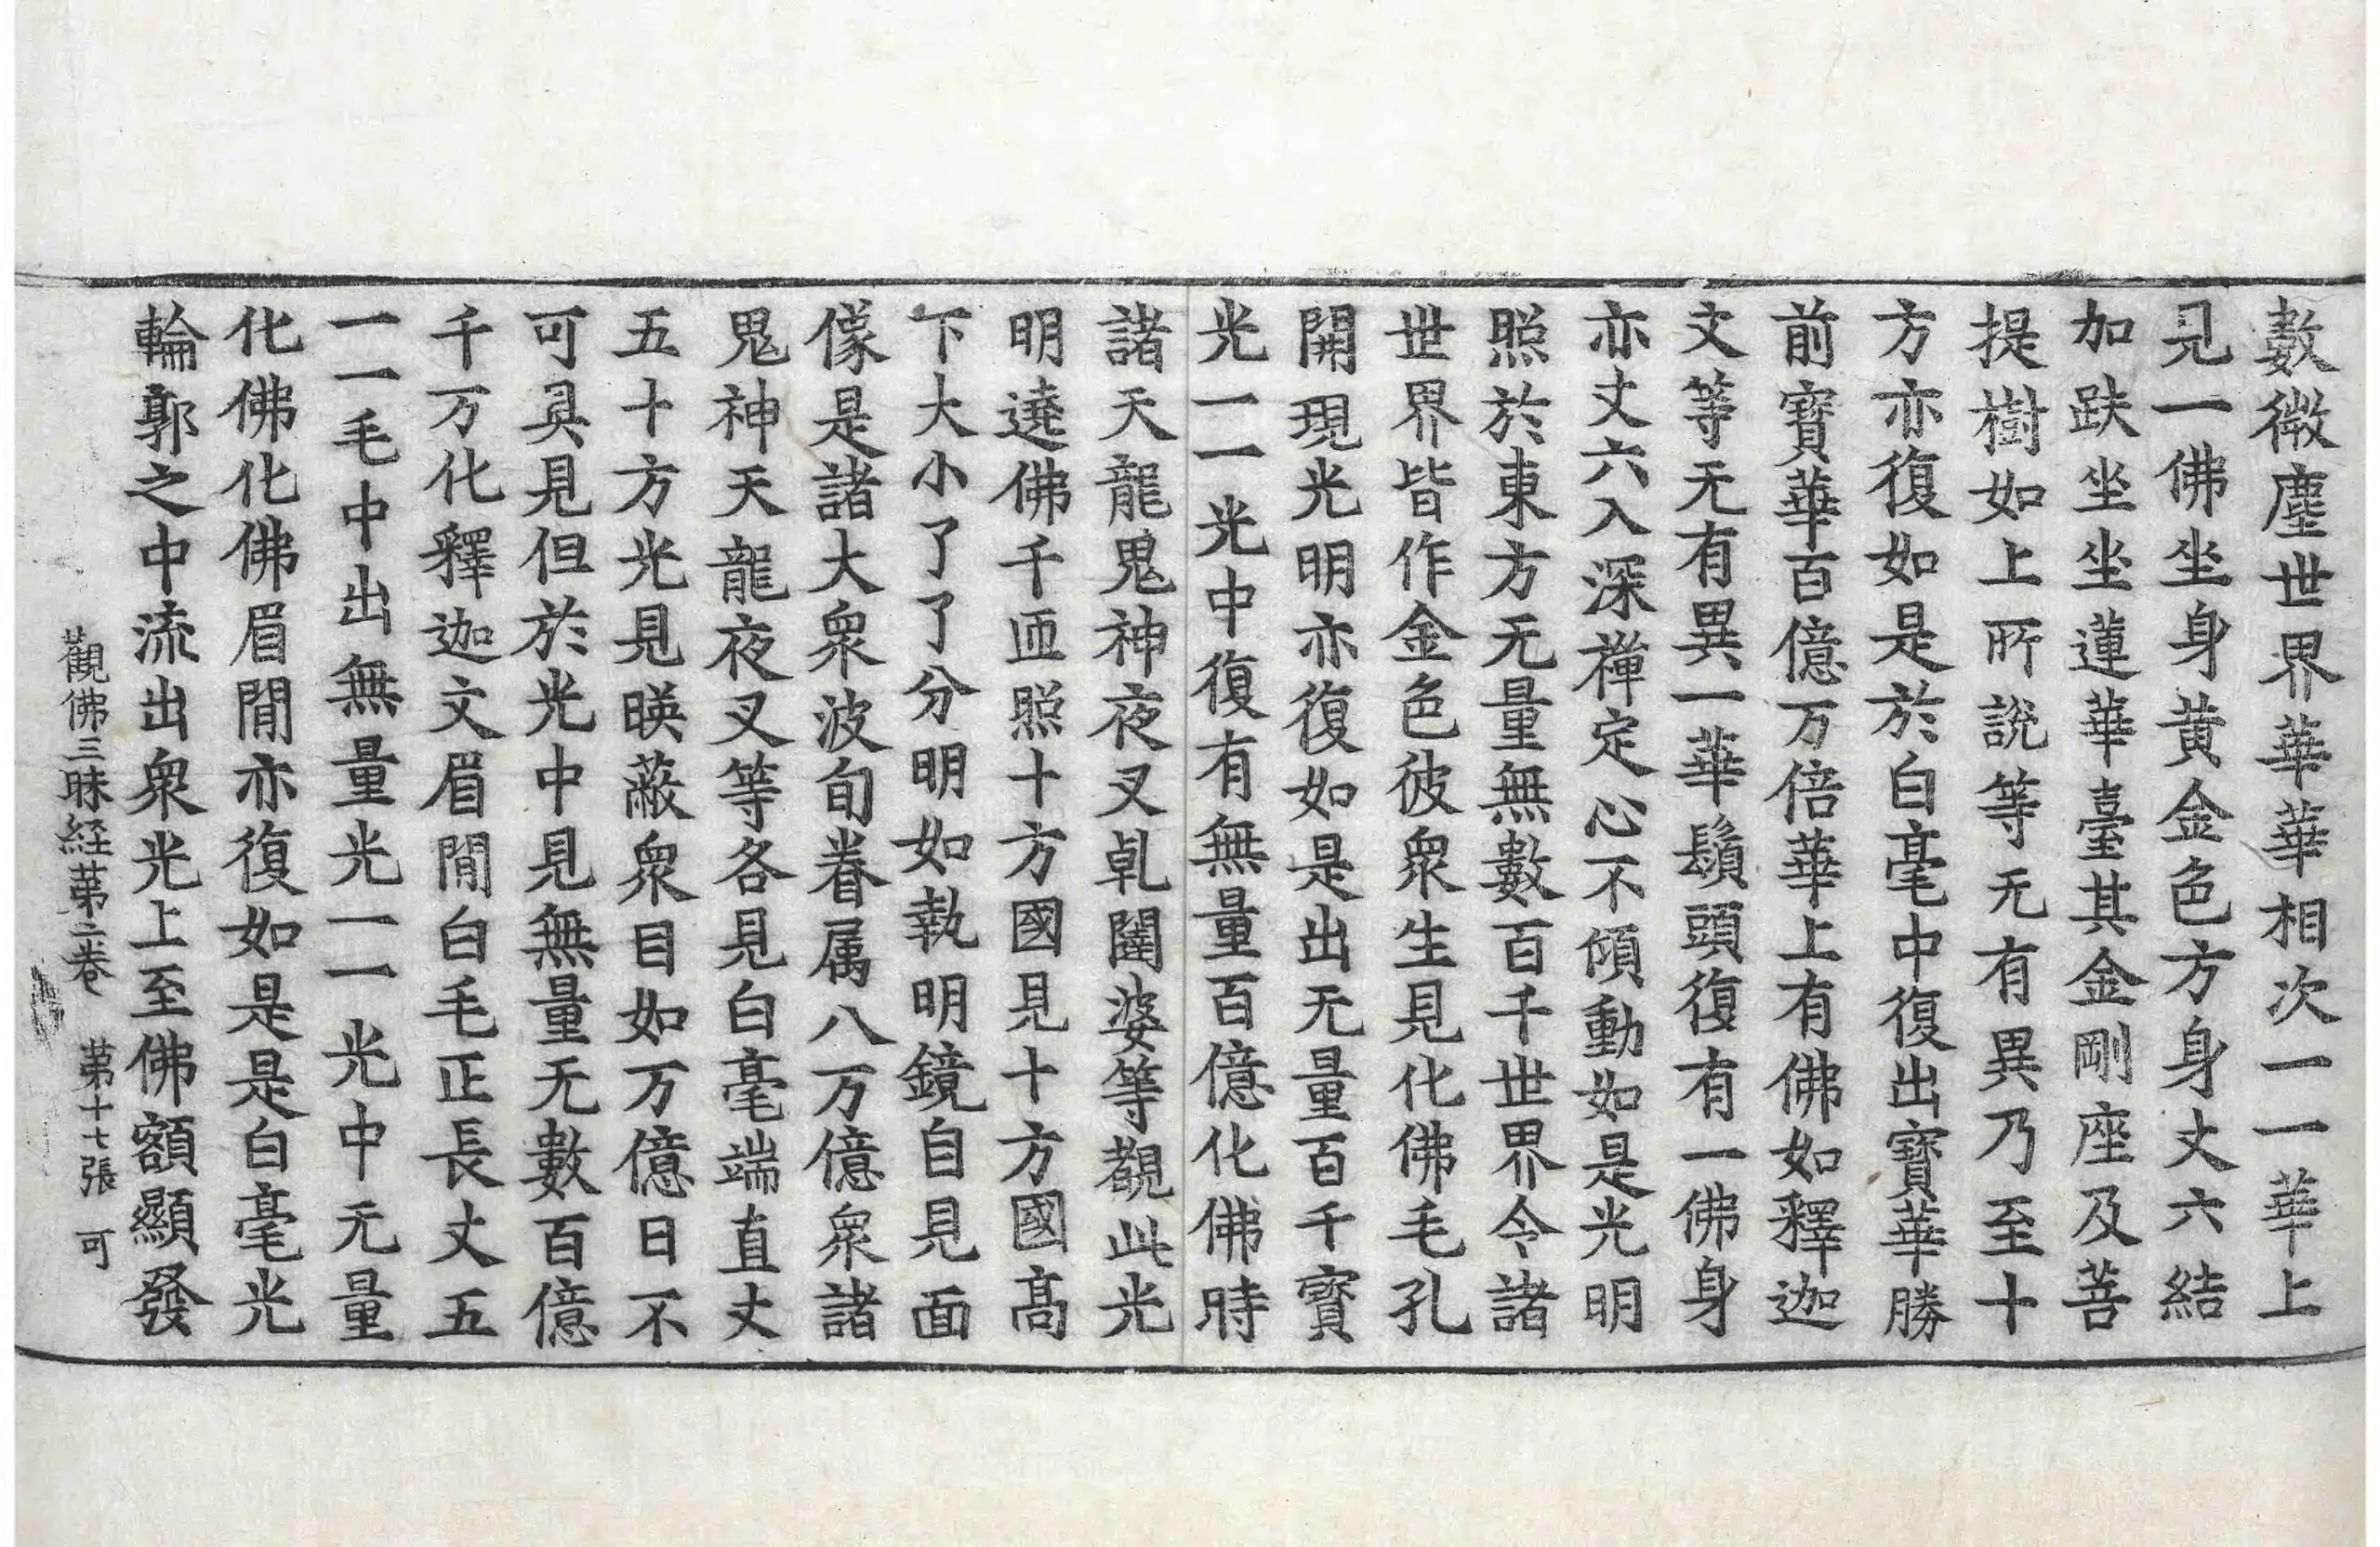 數微塵世界華華相次一一華上
見一佛坐身黃金色方身丈六結
加趺坐坐蓮華臺其金剛座及菩
提樹如上所說等无有異乃至十
方亦復如是於白毫中復出寶華勝
前寶華百億万倍華上有佛如釋迦
文等无有異一華鬚頭復有一佛身
亦丈六入深禪定心不傾動如是光明
照於東方无量無數百千世界令諸
世界皆作金色彼衆生見化佛毛孔
開現光明亦復如是出无量百千寶
光一一光中復有無量百億化佛時
諸天龍鬼神夜叉乹闥婆等觀此光
明遶佛千迊照十方國見十方國高
下大小了了分明如執明鏡自見面
像是諸大衆波旬眷属八万億衆諸
鬼神天龍夜叉等各見白毫端直丈
五十方光見暎蔽衆目如万億日不
可具見但於光中見無量无數百億
千万化釋迦文眉閒白毛正長丈五
一一毛中出無量光一一光中无量
化佛化佛眉閒亦復如是是白毫光
輪郭之中流出衆光上至佛額顯發
觀佛三昧経第二卷 第十七張 可